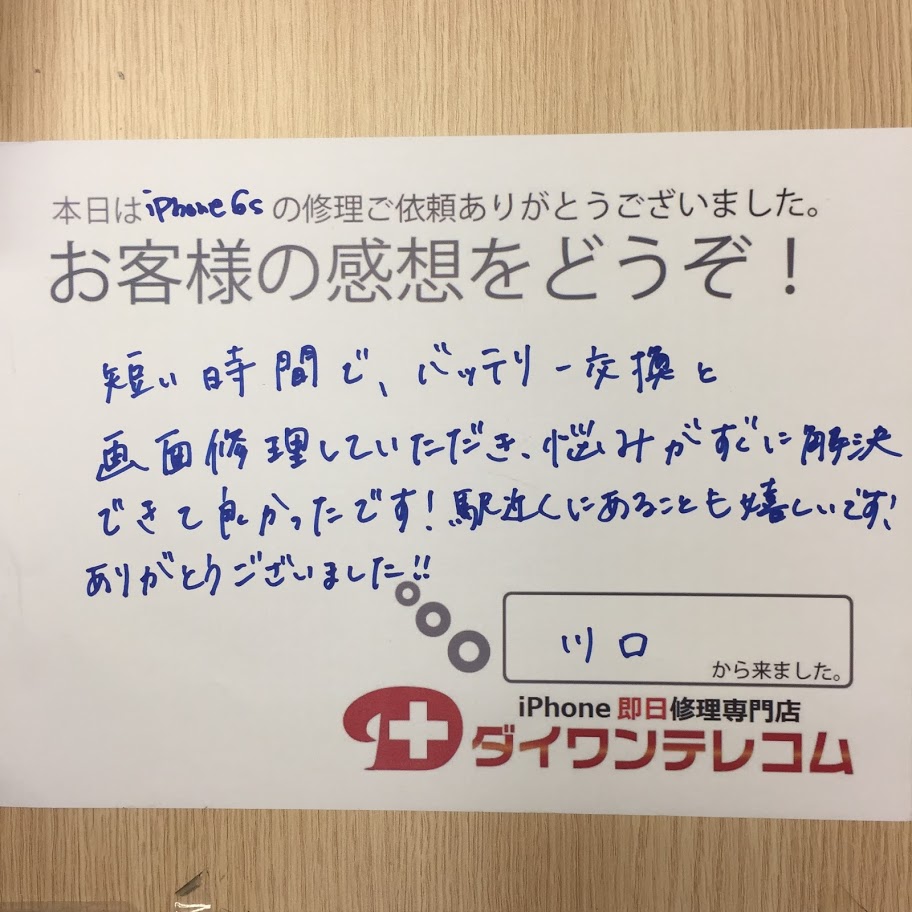 本日はiPhone6sの修理ご依頼ありがとうございました。
お客様の感想をどうぞ！
短い時間で、バッテリー交換と
画面修理していただき、悩みがすぐに解決
できて良かったです！駅近くにあることも嬉しいです！
ありがとうございました!!
川口
から来ました。
iPhone 即日修理専門店
ダイワンテレコム